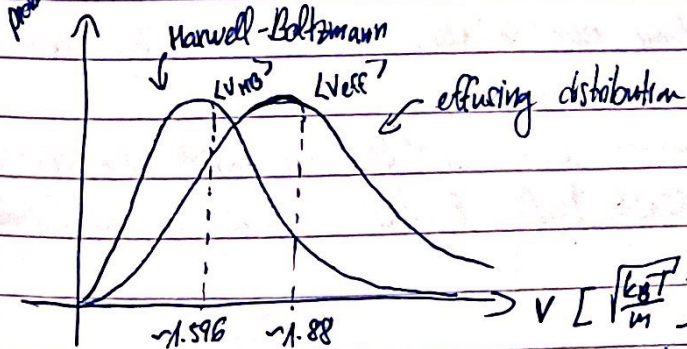 Maxwell-Boltzmann
<V_MB> <V_eff>
effusing distribution
~1.596 ~1.88
V [√(k_BT/m)